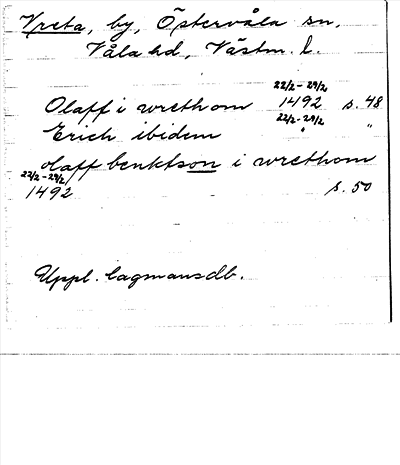 Vreta, by, Östervåla sn,
Våla hd, Västm. l.
22/2-29/2
Olaff i wrethom 1492 s. 48
22/2-29/2
Erich ibidem " "
olaff benktson i wrethom
22/2-29/2
1492 s. 50
Uppl. lagmansdb.